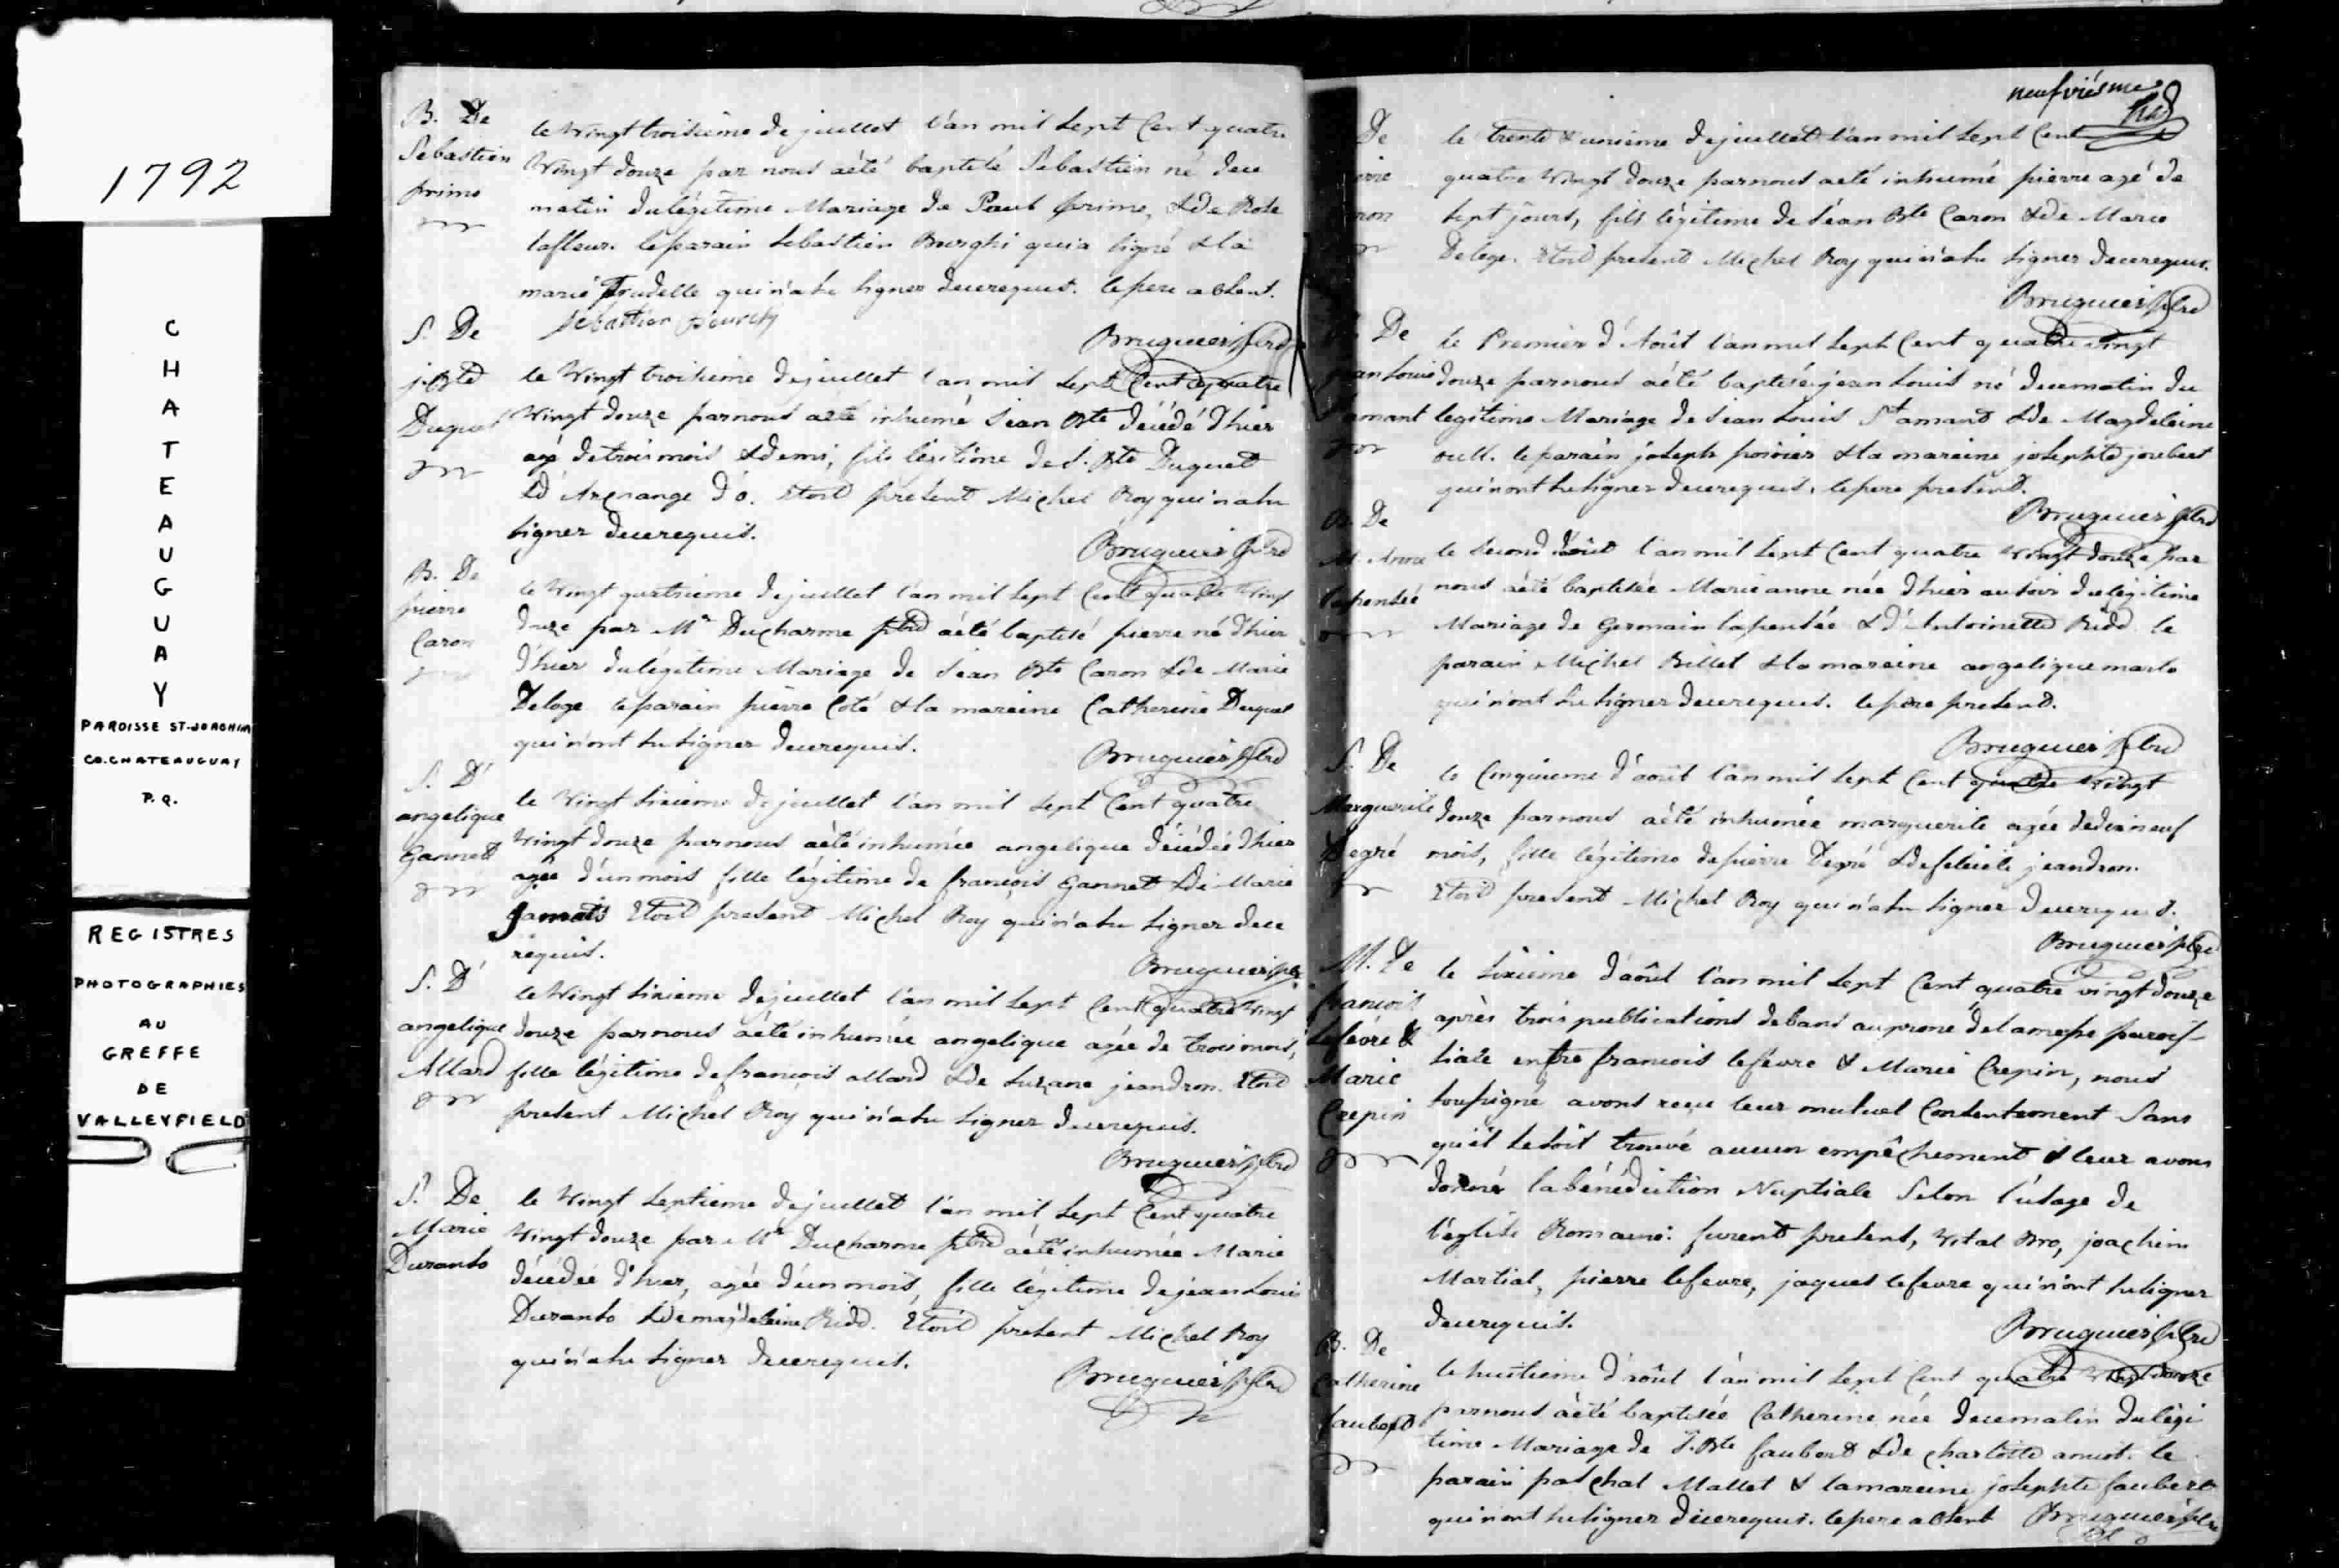 1792
CHATEAUGUAY
PAROISSE ST-JOACHIM
CO. CHATEAUGUAY
P.Q.
REGISTRES
PHOTOGRAPHIES
AU
GREFFE
DE
VALLEYFIELD
B. De
Sebastien
prime
le Vingt troisieme de juillet l'an mil Sept Cent quatre
Vingt douze par nous aété baptisé Sebastien né dece
matin du légitime Mariage de Paul prime, & de Rose
lafleur. le parain Sebastien Burghi qui a signé & la
marie Trudelle qui n'a su signer de ce requis. le pere absent.
Sebastian
Bruguier ptre
S. De
j. Bte
Duquet
le Vingt troisieme de juillet l'an mil Sept Cent quatre
Vingt douze par nous aété inhumé Jean Bte décédé d'hier
agé de trois mois & demi, fils légitime de J. Bte Duquet
& d'Archange d'o. Etoit present Michel Roy qui n'a su
signer de ce requis.
Bruguier ptre
B. De
pierre
Caron
le Vingt quatrieme de juillet l'an mil Sept Cent quatre Vingt
douze par Mr Ducharme ptre aété baptisé pierre né d'hier
d'hier du légitime Mariage de Jean Bte Caron & de Marie
Deloge le parain pierre Coté & la mareine Catherine Duquet
qui n'ont su signer de ce requis.
Bruguier ptre
S. D'
angelique
Gannet
le Vingt Sixieme de juillet l'an mil Sept Cent quatre
Vingt douze par nous aété inhumée angelique décédée d'hier
agée d'un mois fille légitime de françois Gannet & de Marie
Jamats Etoit present Michel Roy qui n'a su signer de ce
requis.
Bruguier ptre
S. D'
angelique
Allard
le Vingt Sixieme de juillet l'an mil Sept Cent quatre Vingt
douze par nous aété inhumée angelique agée de trois mois,
fille légitime de françois allard & de Suzane jeandron. Etoit
present Michel Roy qui n'a su signer de ce requis.
Bruguier ptre
S. De
Marie
Duranto
le Vingt Septieme de juillet l'an mil Sept Cent quatre
Vingt douze par Mr Ducharme ptre aété inhumée Marie
décédée d'hier, agée d'un mois, fille légitime de jean Louis
Duranto & de magdeleine Ridd. Etoit present Michel Roy
qui n'a su signer de ce requis.
Bruguier ptre
neufviésme
De
le trente & unieme de juillet l'an mil Sept Cent
quatre Vingt douze par nous aété inhumé pierre agé de
Sept jours, fils légitime de Jean Bte Caron & de Marie
Deloge. Etoit present Michel Roy qui n'a su signer de ce requis.
Bruguier ptre
De
jean Louis
St amant
le Premier d'Août l'an mil Sept Cent quatre vingt
douze par nous aété baptisé jean Louis né de ce matin du
legitime Mariage de Jean Louis St amand & de Magdeleine
ouell. le parain joseph poirier & la mareine josephte joubert
qui n'ont su signer de ce requis, le pere present.
Bruguier ptre
B. De
M. Anne
lapensée
le Second Août l'an mil Sept Cent quatre Vingt douze par
nous aété baptisée Marie anne née d'hier au soir du légitime
Mariage de Germain lapensée & d'Antoinette Ridd. le
parain Michel Billet & la mareine angelique marlo
qui n'ont su signer de ce requis. le pere present.
Bruguier ptre
S. De
Marguerite
Degré
le Cinquieme d'août l'an mil Sept Cent quatre Vingt
douze par nous aété inhumée marguerite agée de dix neuf
mois, fille légitime de pierre Degré & de felicité jeandron.
Etoit present Michel Roy qui n'a su signer de ce requis.
Bruguier ptre
M. De
francois
lefevre &
Marie
Crepin
le Sixieme d'août l'an mil Sept Cent quatre vingt douze
après trois publications de bans au prone de la messe parois-
siale entre francois lefevre & Marie Crepin, nous
soussigné avons reçu leur mutuel Consentement Sans
qu'il se soit trouvé aucun empêchement & leur avons
donné la bénédiction Nuptiale Selon l'usage de
l'église Romaine: furent present, Vital Bro, joachim
Martial, pierre lefevre, jaques lefevre qui n'ont su signer
de ce requis.
Bruguier ptre
B. De
Catherine
faubert
le huitieme d'août l'an mil Sept Cent quatre Vingt douze
par nous aété baptisée Catherine née de ce matin du légi
time Mariage de J. Bte faubert & de charlotte amiot. le
parain paschal Mallet & la mareine josephte faubert
qui n'ont su signer de ce requis. le pere absent Bruguier ptre